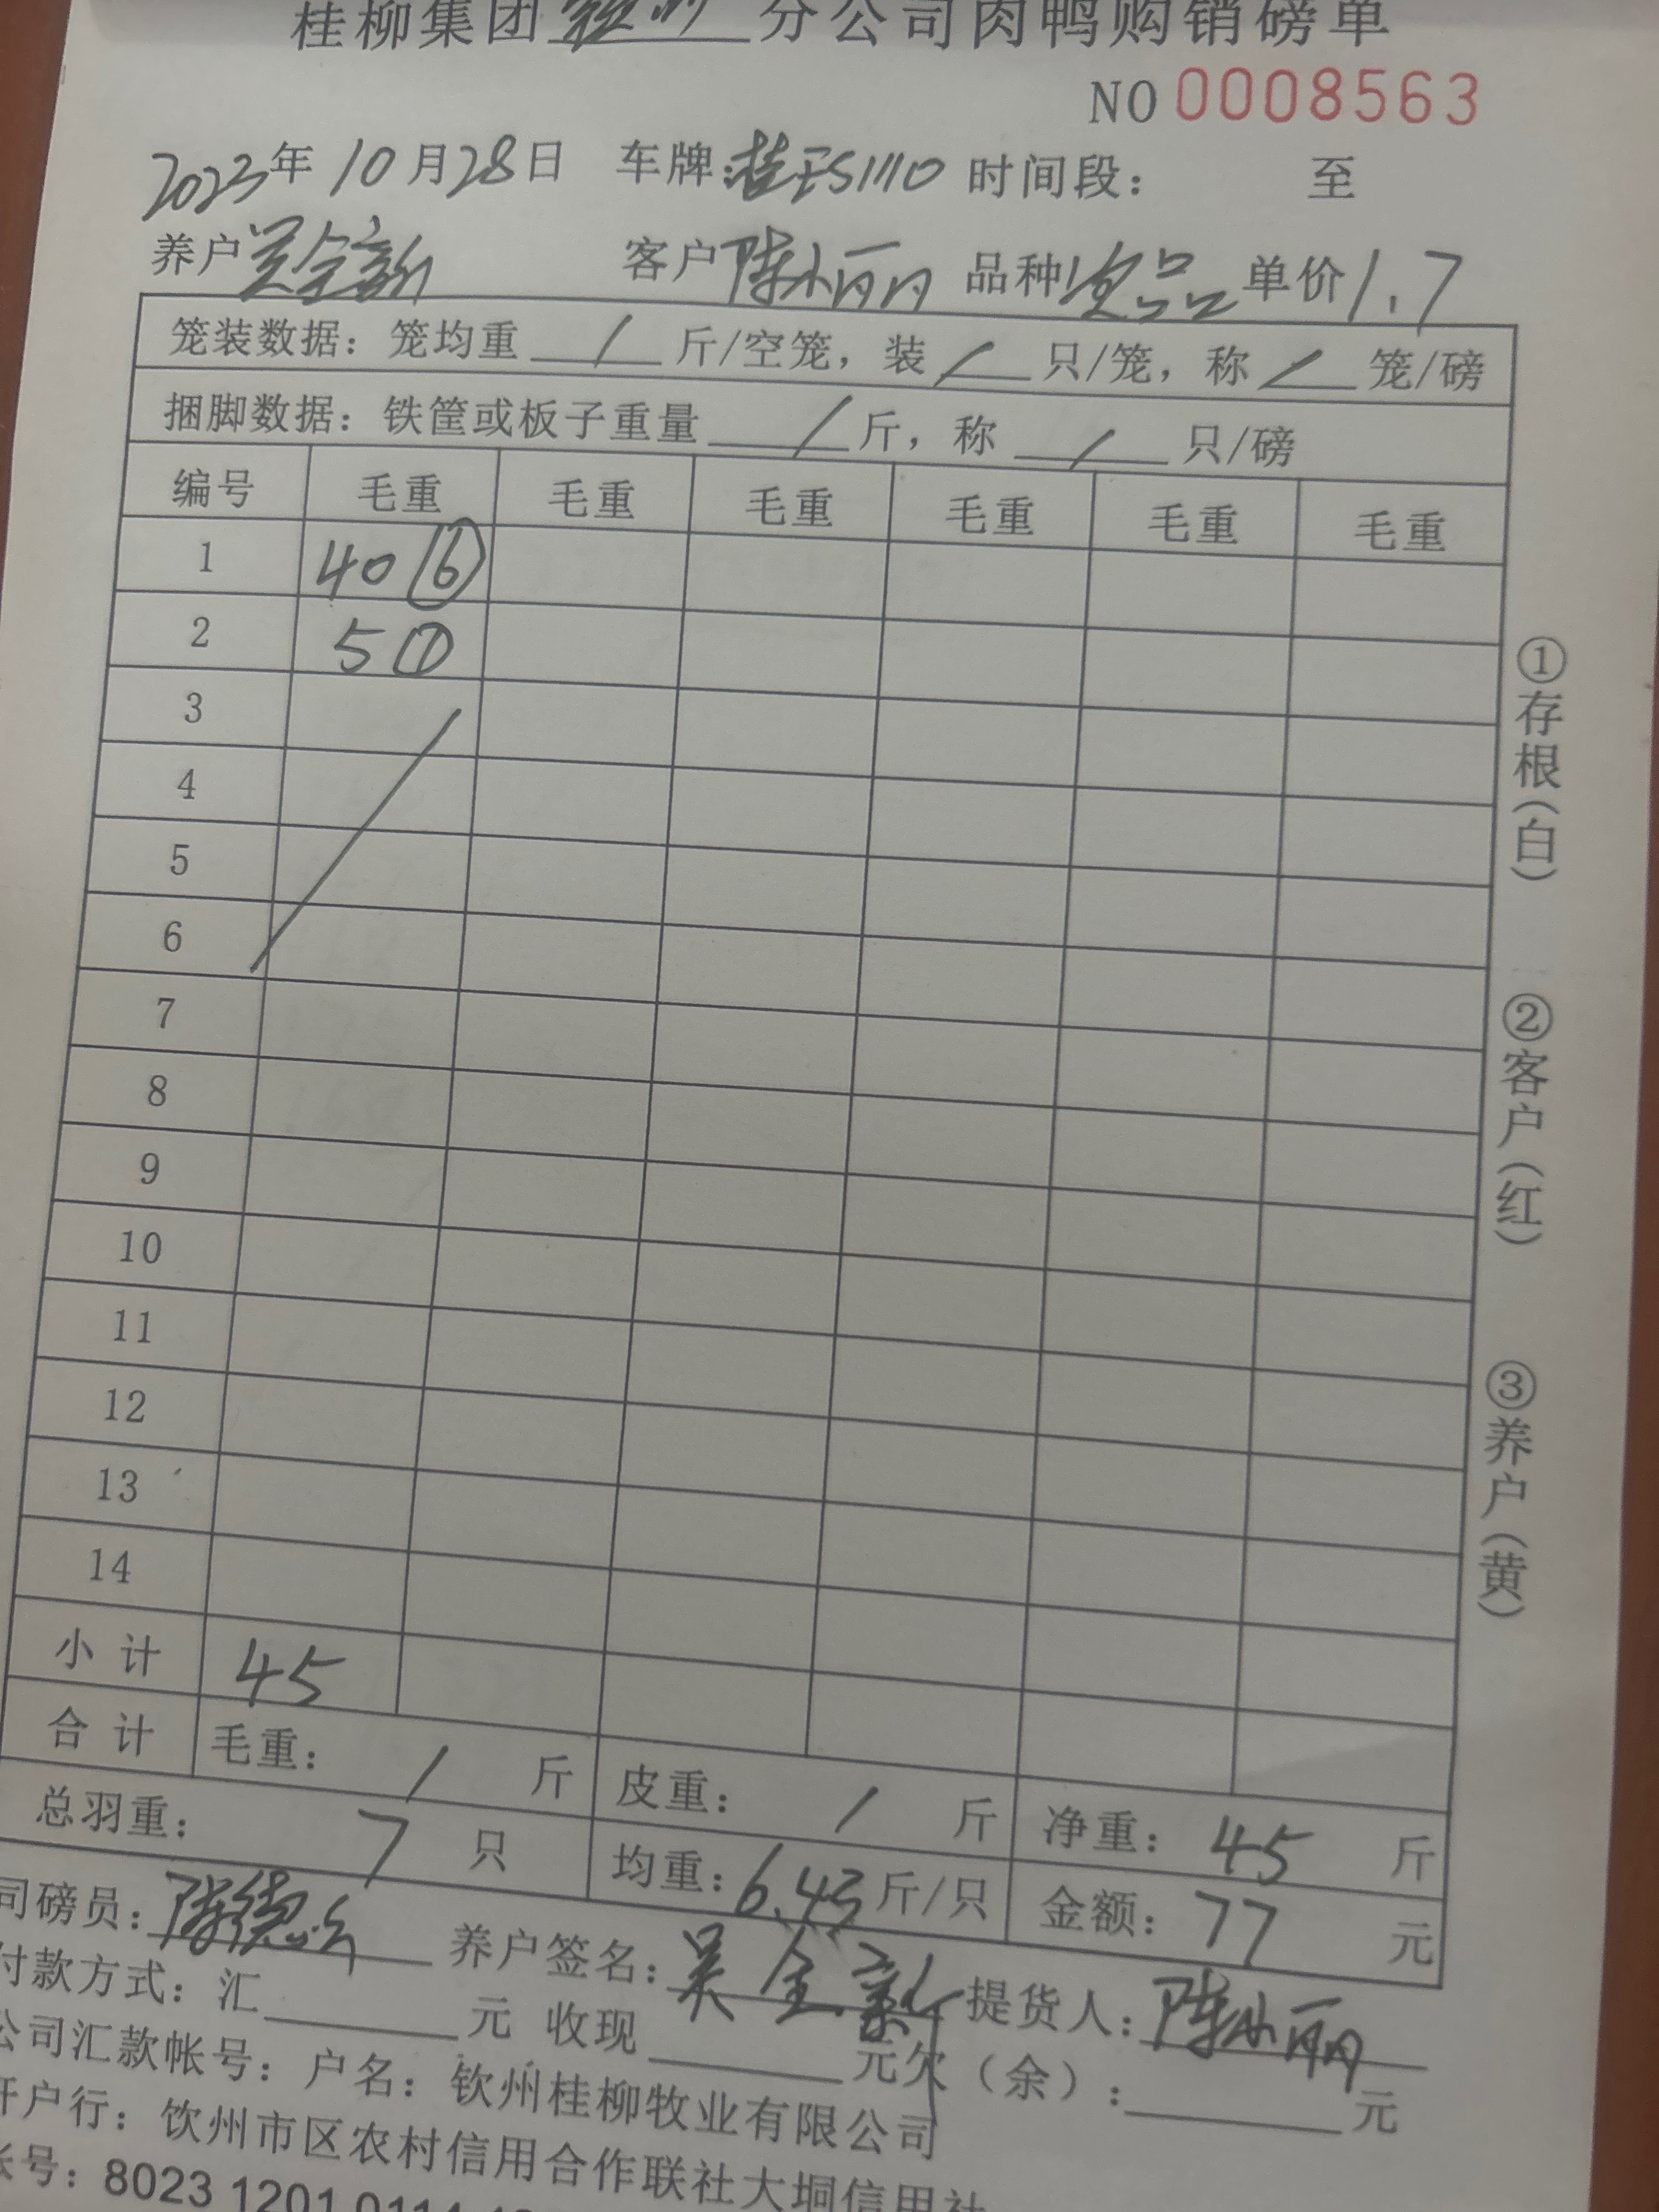 桂柳集团 钦州 分公司肉鸭购销磅单
NO 0008563
2023年10月28日 车牌: 时间段: 至
养户 吴全新 客户 陈小丽 品种 次品 单价 1.7
笼装数据: 笼均重 / 斤/空笼, 装 / 只/笼, 称 / 笼/磅
捆脚数据: 铁筐或板子重量 / 斤, 称 / 只/磅
编号 毛重 毛重 毛重 毛重 毛重 毛重
1 40 ⑥
2 5 ①
3
4
5
6
7
8
9
10
11
12
13
14
小计 45
合计 毛重: / 斤 皮重: / 斤 净重: 45 斤
总羽重: 7 只 均重: 6.43 斤/只 金额: 77 元
司磅员: 养户签名: 吴全新 提货人: 陈小丽
付款方式: 汇 元 收现 元 欠(余): 元
公司汇款帐号: 户名: 钦州桂柳牧业有限公司
开户行: 钦州市区农村信用合作联社大垌信用社
帐号: 8023 1201 0114
①存根(白)
②客户(红)
③养户(黄)